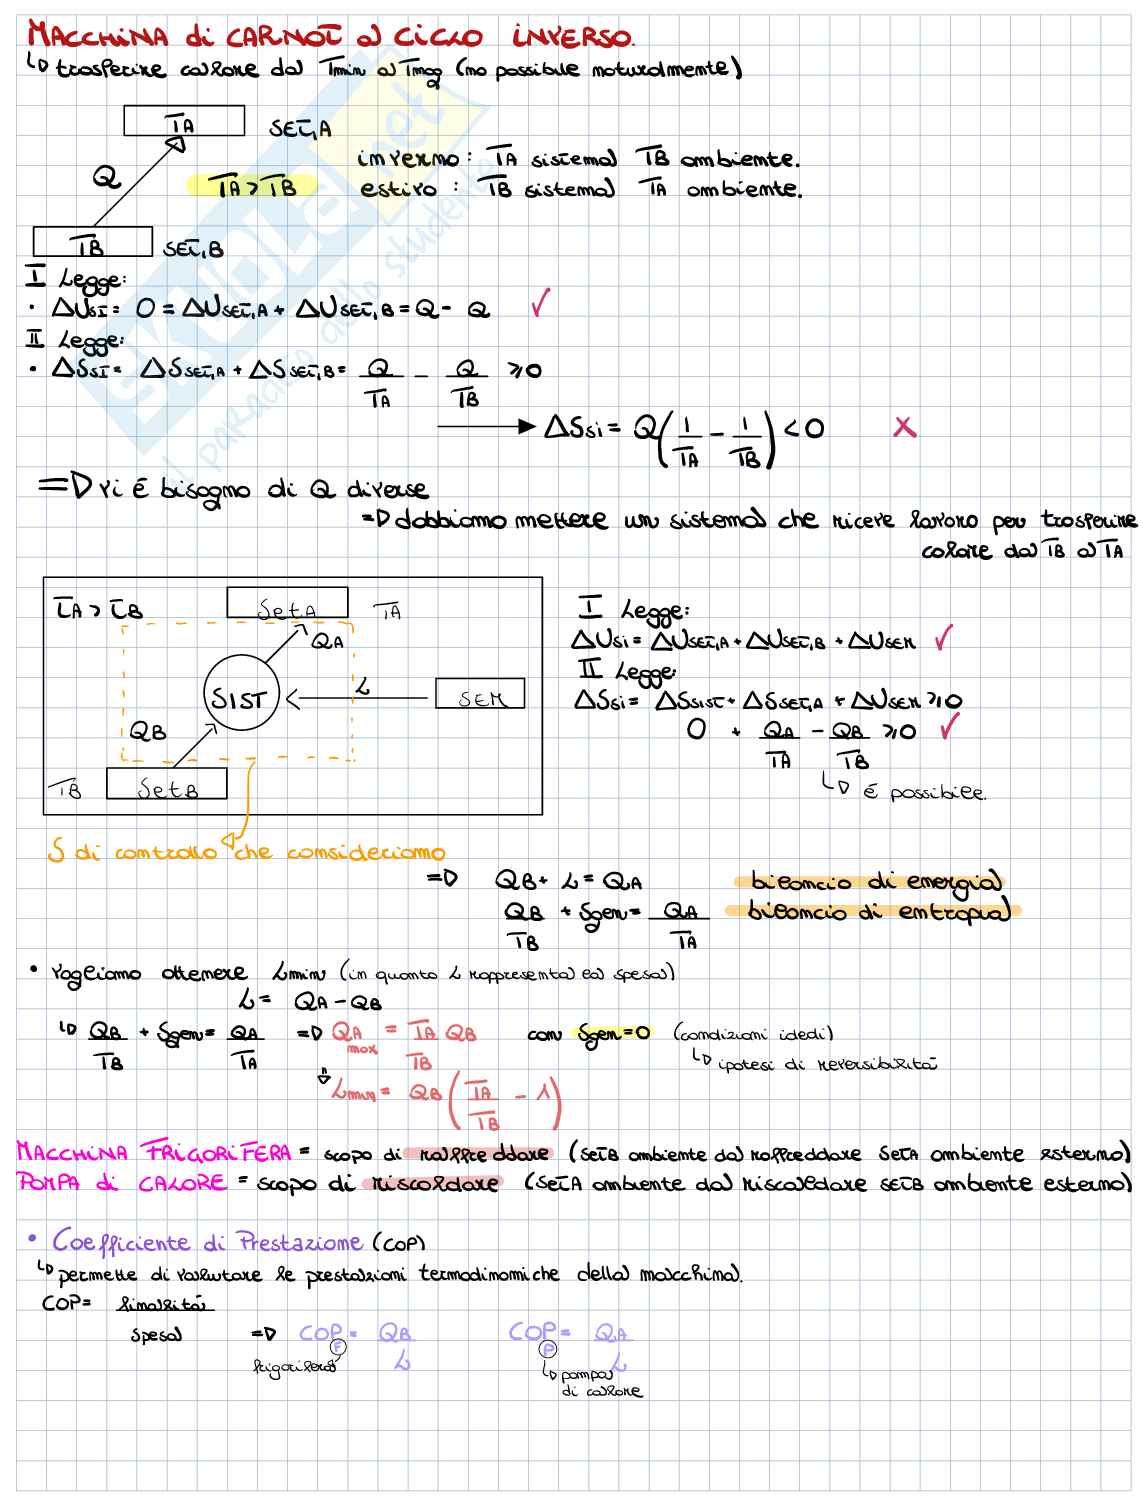 MACCHINA di CARNOT a CICLO INVERSO.
↳ trasferire calore da Tmin a Tmag (no possibile naturalmente)
TA SET,A
inverno: TA sistema TB ambiente.
Q TA > TB estivo: TB sistema TA ambiente.
TB SET,B
I Legge:
· ΔUSI = 0 = ΔUSET,A + ΔUSET,B = Q - Q ✓
II Legge:
· ΔSSI = ΔSSET,A + ΔSSET,B = Q/TA - Q/TB ≥ 0
→ ΔSsi = Q(1/TA - 1/TB) < 0 ✗
⇒ vi é bisogno di Q diverse
⇒ dobbiamo mettere un sistema che riceve lavoro per trasferire
calore da TB a TA
TA > TB SetA TA
QA
SIST L SEM
QB
TB SetB
I Legge:
ΔUsi = ΔUSET,A + ΔUSET,B + ΔUSEM ✓
II Legge:
ΔSsi = ΔSSIST + ΔSSET,A + ΔUSEM ≥ 0
0 + QA/TA - QB/TB ≥ 0 ✓
↳ é possibile.
S di controllo che consideriamo
⇒ QB + L = QA bilancio di energia
QB/TB + Sgen = QA/TA bilancio di entropia
• Vogliamo ottenere Lmin (in quanto L rappresenta la spesa)
L = QA - QB
↳ QB/TB + Sgen = QA/TA ⇒ QA max = TA/TB QB con Sgen=0 (condizioni ideali)
↳ ipotesi di reversibilità
⇓ Lmin = QB(TA/TB - 1)
MACCHINA FRIGORIFERA = scopo di raffreddare (SETB ambiente da raffreddare SETA ambiente esterno)
POMPA di CALORE = scopo di riscaldare (SETA ambiente da riscaldare SETB ambiente esterno)
• Coefficiente di Prestazione (COP)
↳ permette di valutare le prestazioni termodinamiche della macchina.
COP = finalità/spesa ⇒ COP F = QB/L COP P = QA/L
frigorifera ↳ pompa
di calore
skuola.net
il paradiso dello studente